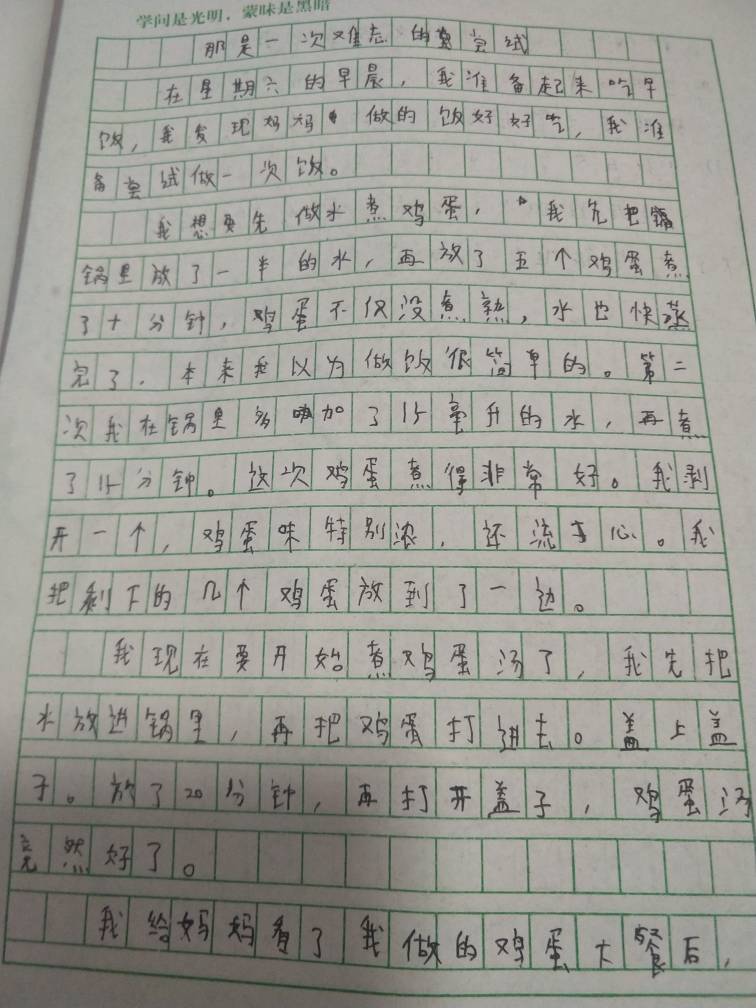 学问是光明，蒙昧是黑暗
那是一次难忘的尝试
在星期六的早晨，我准备起来吃早
饭，我发现妈妈做的饭好好吃，我准
备尝试做一次饭。
我想要先做水煮鸡蛋，我先把
锅里放了一半的水，再放了五个鸡蛋煮
了十分钟，鸡蛋不仅没煮熟，水也快蒸
完了。本来我以为做饭很简单的。第二
次我在锅里多加了15毫升的水，再煮
了15分钟。这次鸡蛋煮得非常好。我剥
开一个，鸡蛋味特别浓，还流心。我
把剩下的几个鸡蛋放到了一边。
我现在要开始煮鸡蛋汤了，我先把
水放进锅里，再把鸡蛋打进去。盖上盖
子。放了20分钟，再打开盖子，鸡蛋汤
竟然好了。
我给妈妈看了我做的鸡蛋大餐后，